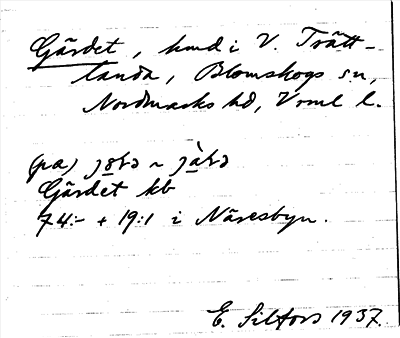 Gärdet, hmd i V. Trätt-
landa, Blomskogs sn,
Nordmarks hd, Vrml l.
(pa)
Gärdet kb
74:- + 19:1 i Näresbyn.
E. Silfors 1937.